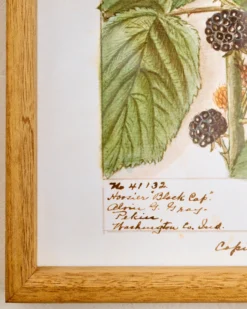 No 41132.
Hoosier "Black Cap".
Alvin G. Gray.
Pekin,
Washington Co. Ind.
Copi